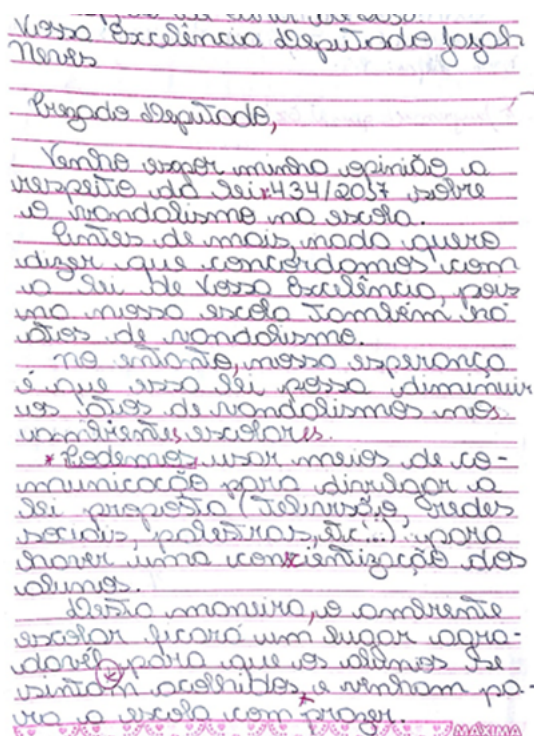 Vossa Excelência Deputado Josah
Neves
Prezado Deputado,
Venho expor minha opinião a
respeito da lei 434/2037 sobre
o vandalismo na escola.
Antes de mais, nada quero
dizer que concordamos com
a lei de Vossa Excelência, pois
na nossa escola também há
atos de vandalismo.
no entanto, nossa esperança
é que essa lei possa diminuir
os atos de vandalismos nos
ambientes escolares.
* Podemos usar meios de co-
municação para divulgar a
lei proposta (Televisão, redes
sociais, palestras, etc...) para
haver uma concientização dos
alunos.
Desta maneira, o ambiente
escolar ficará um lugar agra-
davél para que os alunos se
sintam acolhidos, e venham pa-
ra a escola com prazer.
MÁXIMA